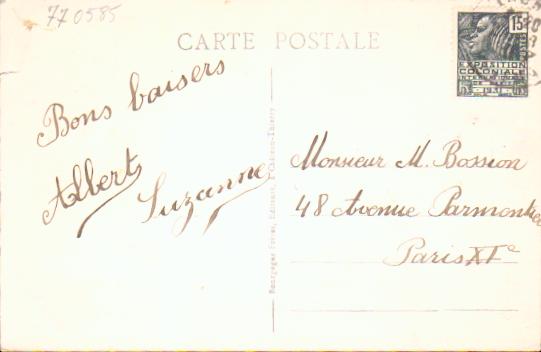 770585
CARTE POSTALE
15c
POSTES
EXPOSITION
COLONIALE
INTERNATIONALE
1931
Bons baisers
Albert
Suzanne
Monsieur M. Bossion
48 Avenue Parmentier
Paris XIe
Bourgogne Frères, Editeurs, Château-Thierry